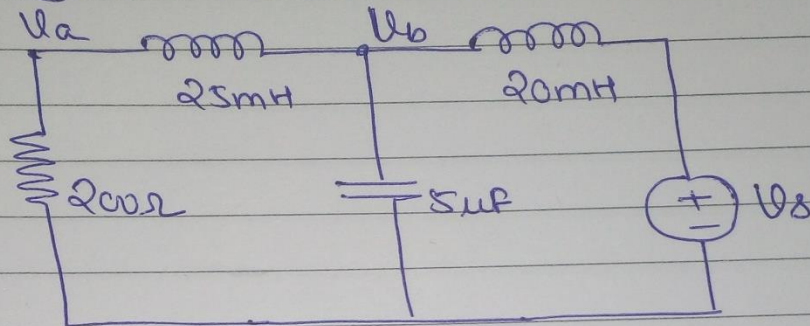 Va Vb
25mH 20mH
200Ω 5μF + Vs
−